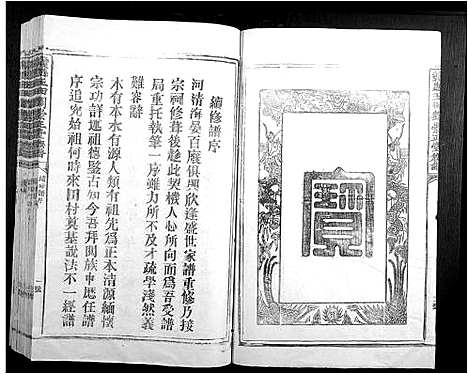 續修譜序
河清海晏百廢俱興欣逢盛世家譜重修乃接
宗祠修葺後趁此契機人心所向而爲吾受譜
局重托執筆一序雖力所不及才疏學淺然義
難容辭
木有本水有源人類有祖先爲正本清源緬懷
宗功詳述祖德鑒古知今吾拜閱族中歷任譜
序追究始祖何時來田村奠基説法不一經譜
寶